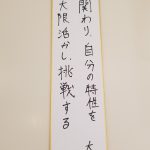 関わり、自分の特性を
大限活かし、挑戦する
大